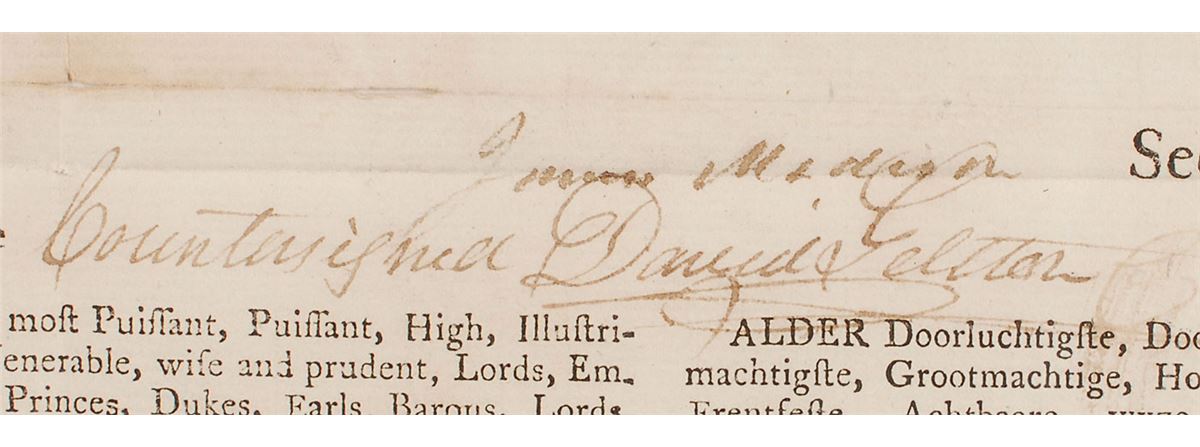 James Madison
Sec
Countersigned David Gelston
most Puiſſant, Puiſſant, High, Illuſtri-
enerable, wiſe and prudent, Lords, Em-
Princes, Dukes, Earls, Barons, Lords
ALDER Doorluchtigſte, Doo
machtigſte, Grootmachtige, Ho
Erentfeſte, Achtbaare, wyze